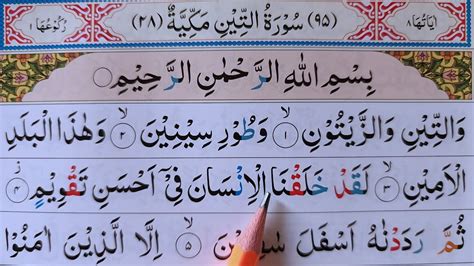 اٰيَاتُهَا ٨ (٩٥) سُوْرَةُ التِّيْنِ مَكِّيَّةٌ (٢٨) رُكُوْعُهَا ١
بِسْمِ اللّٰهِ الرَّحْمٰنِ الرَّحِيْمِ
وَالتِّيْنِ وَالزَّيْتُوْنِ ۙ‏ ١ وَطُوْرِ سِيْنِيْنَ ۙ‏ ٢ وَهٰذَا الْبَلَدِ
الْاَمِيْنِ ۙ‏ ٣ لَقَدْ خَلَقْنَا الْاِنْسَانَ فِيْۤ اَحْسَنِ تَقْوِيْمٍ ۙ ٤
ثُمَّ رَدَدْنٰهُ اَسْفَلَ سٰفِلِيْنَ ۙ‏ ٥ اِلَّا الَّذِيْنَ اٰمَنُوْا